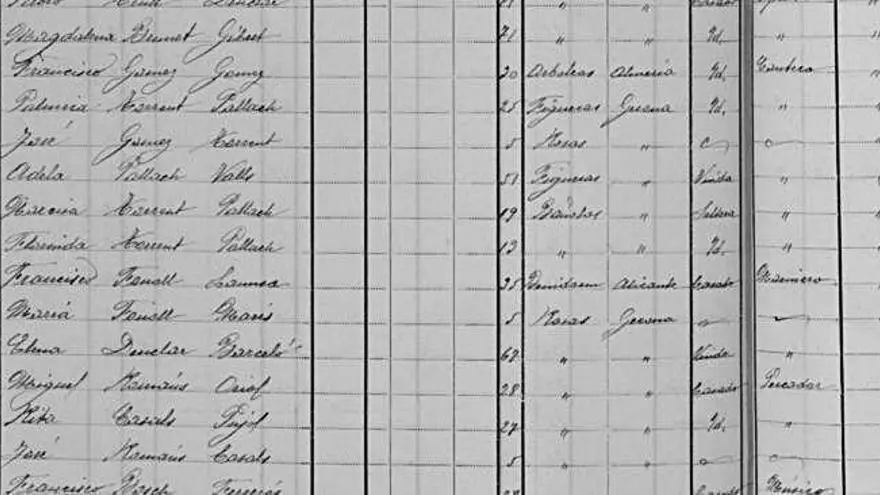 Magdalena Brunet Gibert 71 " " Id. " "
Francisco Gomez Gomez 30 Arboleas Almería Id. Cantero "
Palmira Torrent Pallach 25 Figueras Gerona Id. " "
José Gomez Torrent 5 Rosas "
Adela Pallach Valls 51 Figueras " Viuda " "
Narcisa Torrent Pallach 19 " Soltera " "
Florinda Torrent Pallach 13 " " Id. " "
Francisco 35 Benidorm Alicante Casado Marinero "
María 5 Rosas Gerona " "
Elena Denclar Barceló 62 " " Viuda "
Miguel Romañs Oriol 28 " " Casado Pescador
Rita Casals Pujol 27 " " Id. " "
José Romañs Casals 5 " "
Francisco Bosch Músico